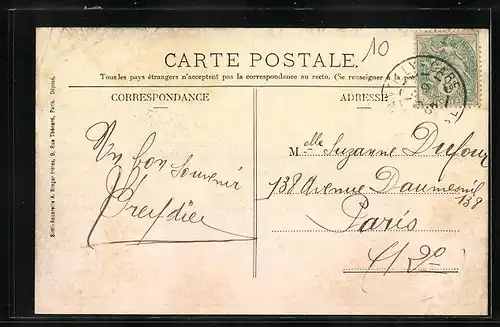 10
CARTE POSTALE.
Tous les pays étrangers n'acceptent pas la correspondance au recto. (Se renseigner à la
CORRESPONDANCE
ADRESSE
Un bon souvenir
Melle Suzanne Dufour
138 Avenue Daumesnil
138
Paris
Simili-Aquarelle A. Breger frères, 9, Rue Thénard, Paris. Déposé.